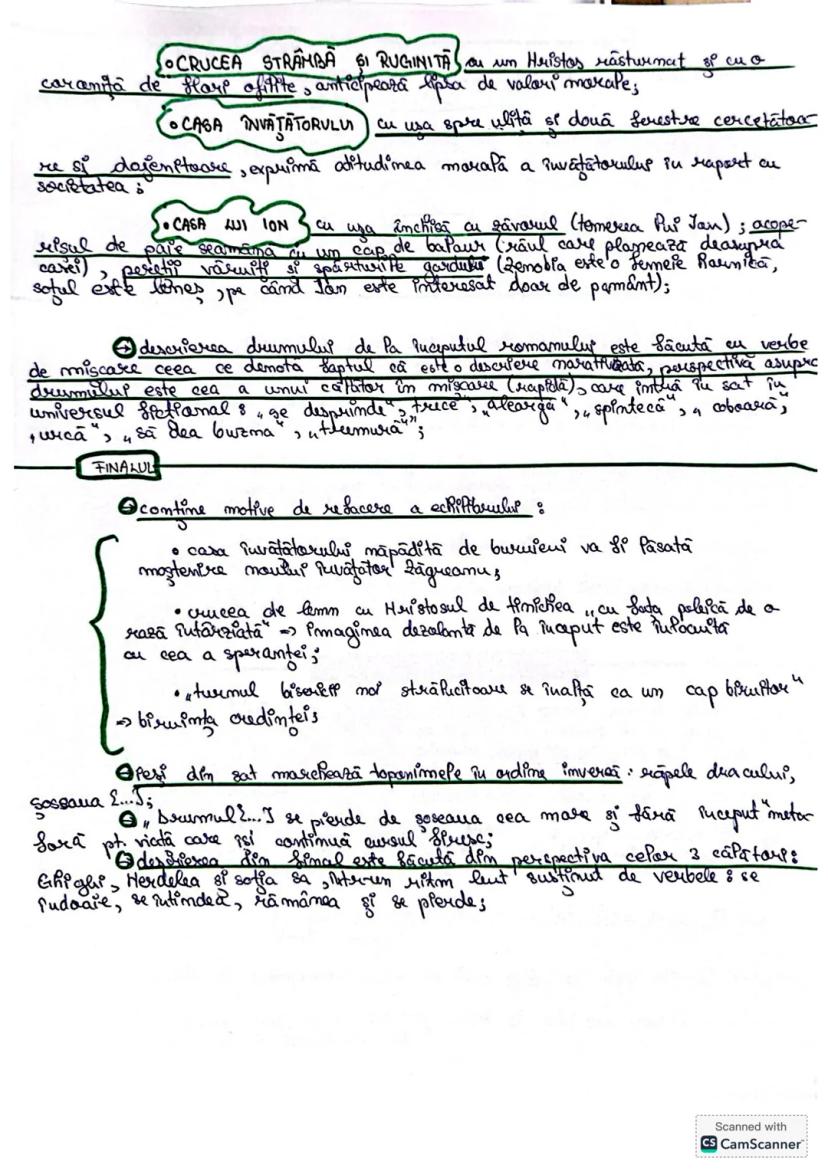 • CRUCEA STRÂMBĂ ȘI RUGINITĂ cu un Hristos răsturnat și cu o
coroniță de flori ofilite, anticipează lipsa de valori morale;
• CASA ÎNVĂȚĂTORULUI cu ușa spre uliță și două ferestre cercetătoa
re și dojenitoare, exprimă atitudinea morală a învățătorului în raport cu
societatea;
• CASA LUI ION cu ușa închisă cu zăvorul (temerea lui Ion); acope-
rișul de paie seamănă cu un cap de balaur (răul care planează deasupra
casei), pereții văruiți și spărturile gardului (Zenobia este o femeie harnică,
soțul este leneș, pe când Ion este interesat doar de pământ);
→ descrierea drumului de la începutul romanului este făcută cu verbe
de mișcare ceea ce denotă faptul că este o descriere narativizată, perspectiva asupra
drumului este cea a unui călător în mișcare (rapidă), care intră în sat în
universul ficțional: „se desprinde", „trece", „aleargă", „spintecă", „coboară",
„urcă", „să dea buzna", „tremură";
FINALUL
→ conține motive de refacere a echilibrului:
• casa învățătorului năpădită de buruieni va fi lăsată
moștenire noului învățător Zăgreanu;
• crucea de lemn cu Hristosul de tinichea „cu fața poleită de o
rază întârziată" => imaginea dezolantă de la început este înlocuită
cu cea a speranței;
• „turnul bisericii noi strălucitoare se înalță ca un cap biruitor"
=> biruința credinței;
→ Ieși din sat marchează toponimele în ordine inversă: râpele dracului,
șoseaua [...];
→ „Drumul [...] se pierde de șoseaua cea mare și fără început" meta-
foră pt. viață care își continuă cursul firesc;
→ descrierea din final este făcută din perspectiva celor 3 călători:
Ghighi, Herdelea și soția sa, într-un ritm lent susținut de verbele: se
îndoaie, se întindea, rămânea și se pierde;
Scanned with
CS CamScanner